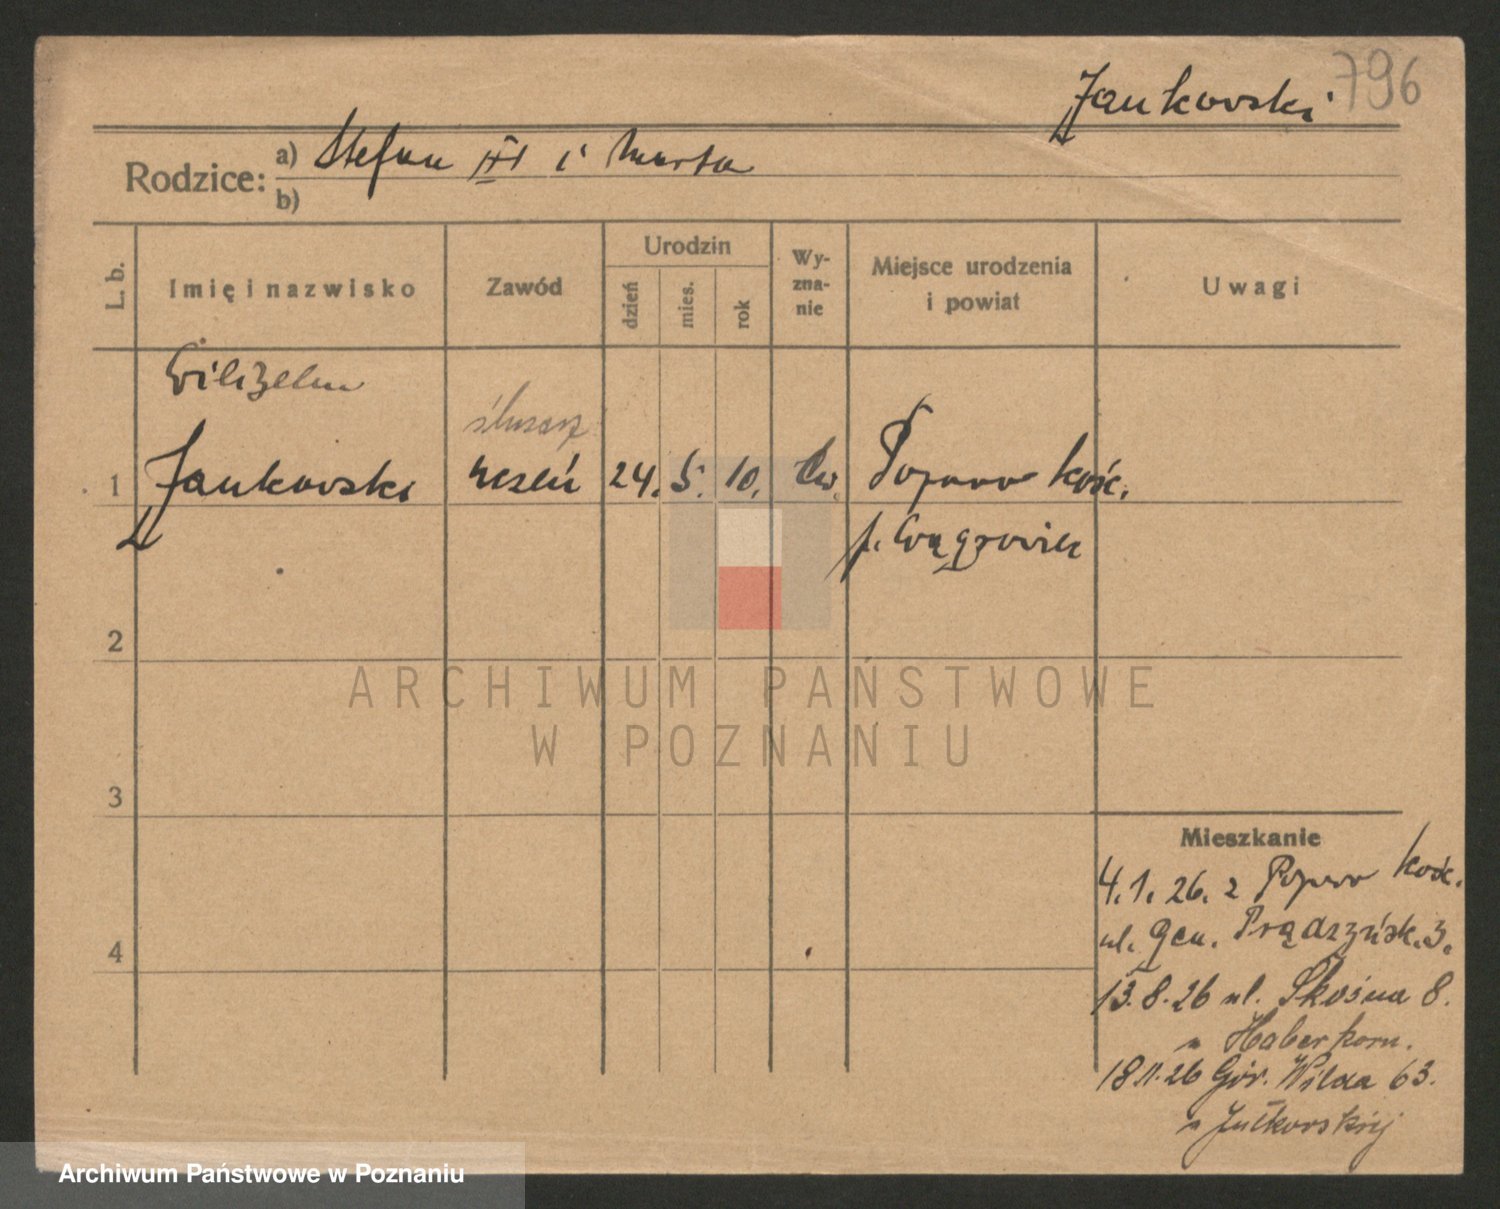 Jankowski 796
Rodzice: a) Stefan III i Marta
b)
L. b.
Imię i nazwisko
Zawód
Urodzin
dzień
mies.
rok
Wy-
zna-
nie
Miejsce urodzenia
i powiat
Uwagi
Wilhelm
ślusarz
1 Jankowski uczeń 24. 5. 10. Ew. Popowo Kość.
p. Wągrowiec
2
3
4
Mieszkanie
4.1.26. z Popowo Kość.
ul. Gen. Prądzyńsk. 3.
13.8.26 ul. Skośna 8.
u Haberkorn.
18 11.26 Gór. Wilda 63.
u
ARCHIWUM PAŃSTWOWE
W POZNANIU
Archiwum Państwowe w Poznaniu